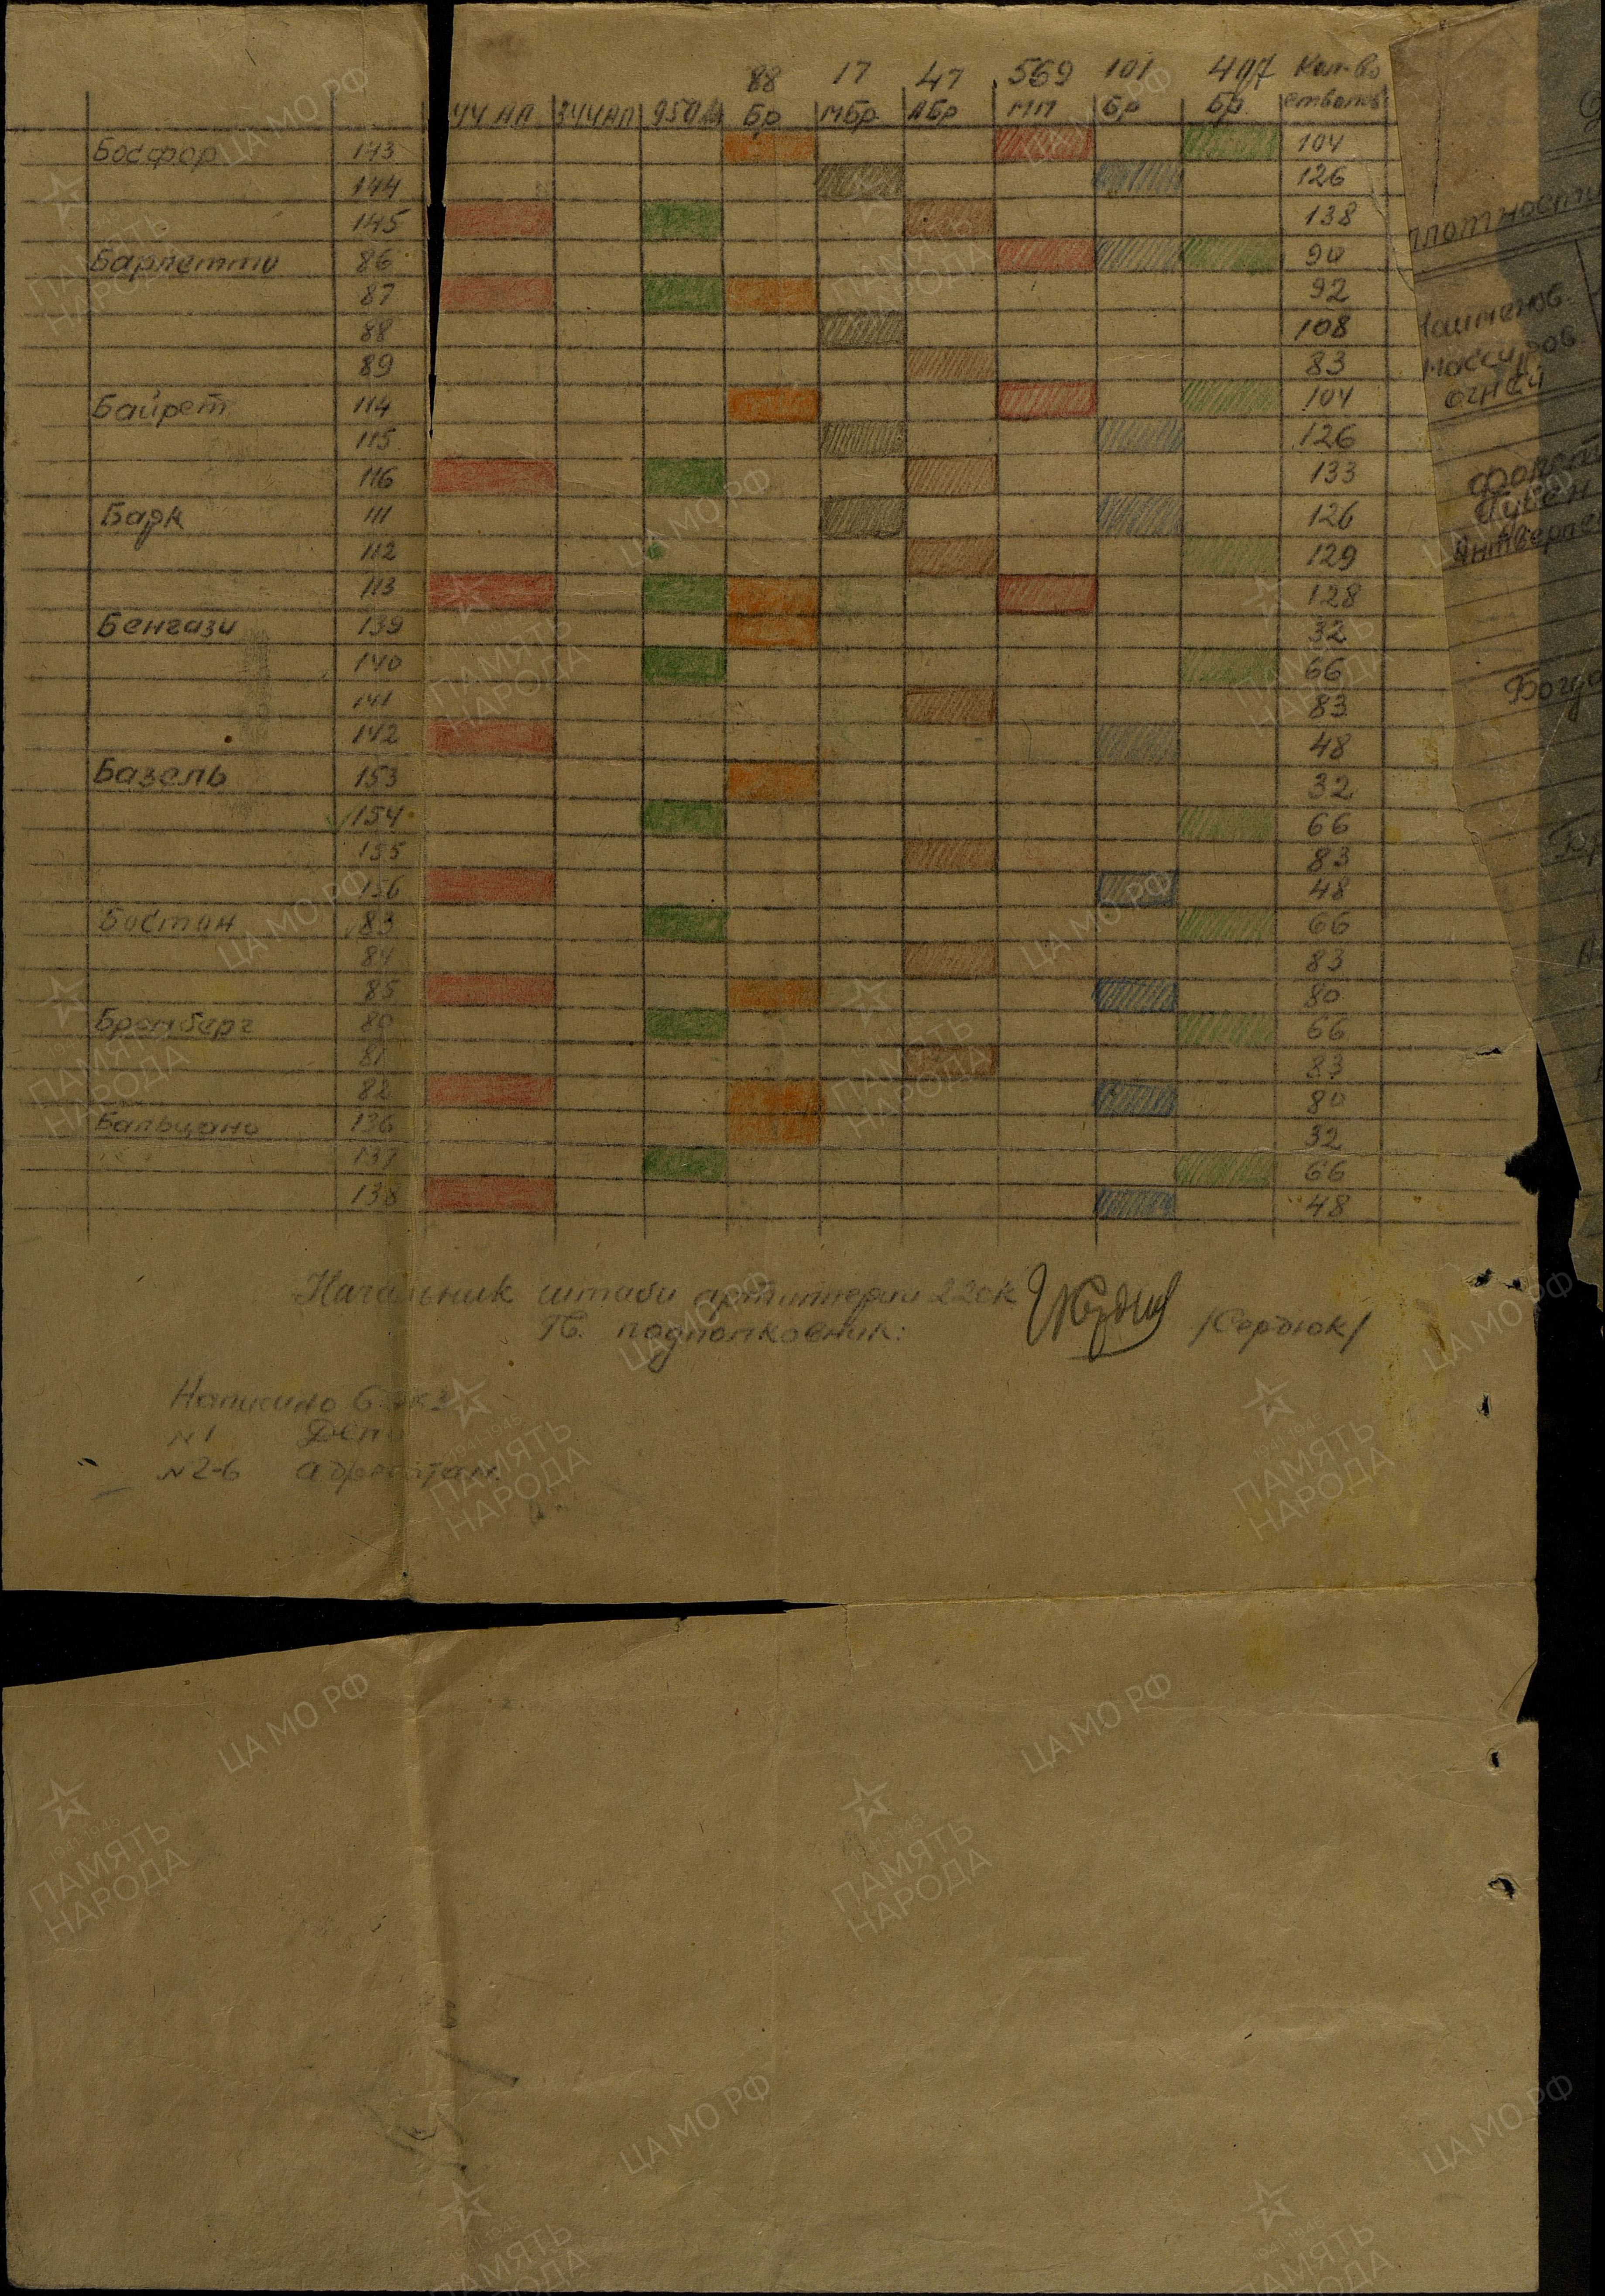 88 17 47 569 101 407 Кол-во
44 АП 244 АП 950 Бр МБр АБр МП Бр Бр стволов
Босфор 143 104
144 126
145 138
Барлетто 86 90
87 92
88 108
89 83
Байрет 114 104
115 126
116 133
Барк 111 126
112 129
113 128
Бенгази 139 32
140 66
141 83
142 48
Базель 153 32
154 66
155 83
156 48
Бостон 83 66
84 83
85 80
Бромберг 80 66
81 83
82 80
Бальцано 136 32
137 66
138 48
Начальник штаба артиллерии 22 СК
Гв. подполковник: /Сердюк/
Написано 6 экз
№1 Дело
№2-6 адресатам.
плотности
Наименов.
массиров.
огней
Антверпен
ЦА МО РФ
1941-1945
ПАМЯТЬ
НАРОДА